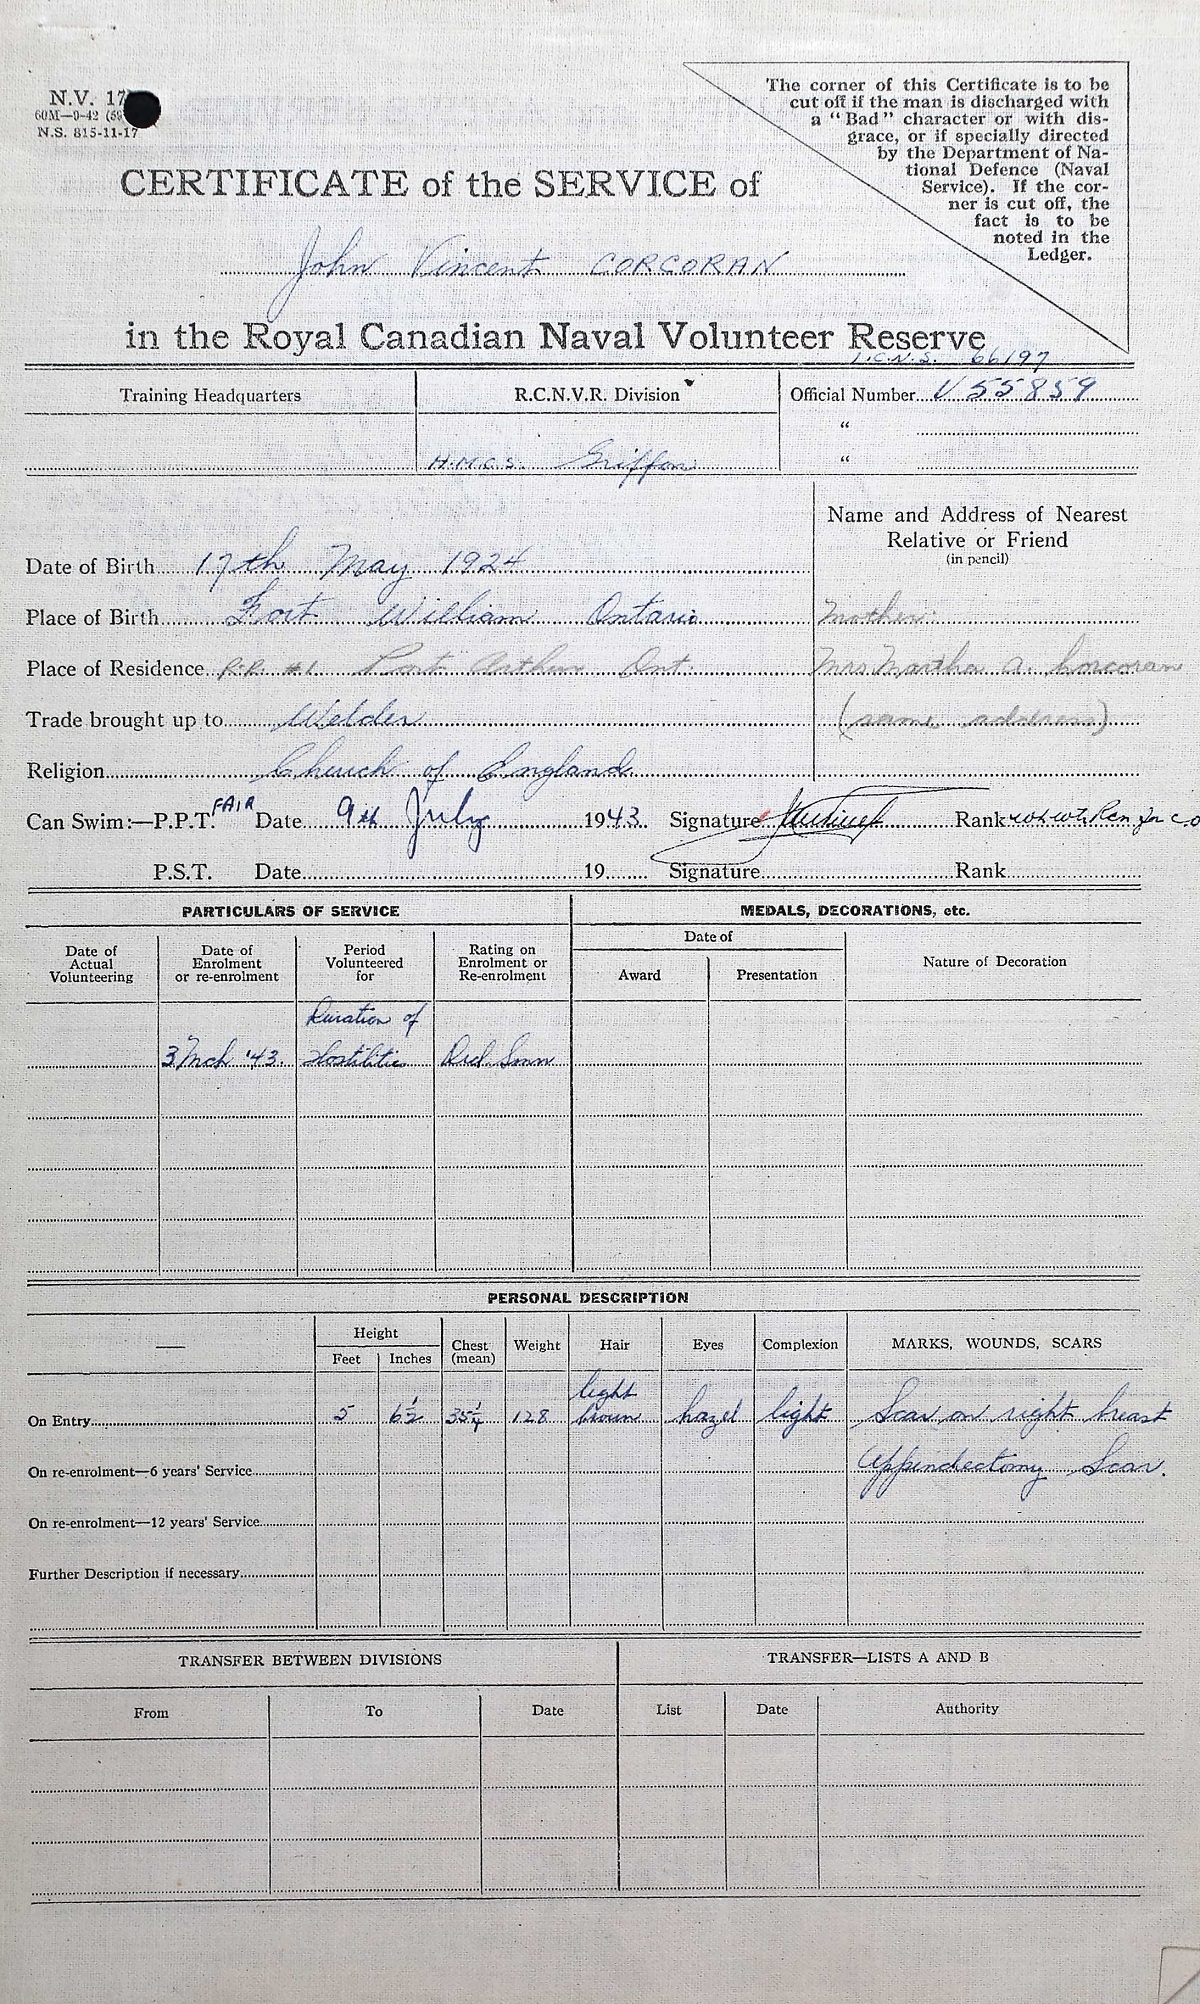 N.V. 17
60M—9-42 (59
N.S. 815-11-17
The corner of this Certificate is to be
cut off if the man is discharged with
a "Bad" character or with dis-
grace, or if specially directed
by the Department of Na-
tional Defence (Naval
Service). If the cor-
ner is cut off, the
fact is to be
noted in the
Ledger.
CERTIFICATE of the SERVICE of
John Vincent CORCORAN
in the Royal Canadian Naval Volunteer Reserve
66197
Training Headquarters
R.C.N.V.R. Division
Official Number V 55859
"
H.M.C.S. Griffon
"
Name and Address of Nearest
Relative or Friend
(in pencil)
Date of Birth 17th May 1924
Place of Birth Fort William Ontario
Mother:
Place of Residence R.R. #1 Port Arthur Ont.
Mrs. Martha A. Corcoran
Trade brought up to Welder
(same address)
Religion Church of England
Can Swim:—P.P.T. FAIR Date 9th July 1943. Signature Rank
P.S.T. Date 19 Signature Rank
PARTICULARS OF SERVICE
MEDALS, DECORATIONS, etc.
Date of Actual Volunteering
Date of Enrolment or re-enrolment
Period Volunteered for
Rating on Enrolment or Re-enrolment
Date of
Award
Presentation
Nature of Decoration
Duration of
3 Mch '43. Hostilities Ord. Smn
PERSONAL DESCRIPTION
—
Height
Feet
Inches
Chest (mean)
Weight
Hair
Eyes
Complexion
MARKS, WOUNDS, SCARS
light
On Entry 5 6½ 35¼ 128 brown hazel light Scar on right breast
On re-enrolment—6 years' Service Appendectomy Scar.
On re-enrolment—12 years' Service
Further Description if necessary
TRANSFER BETWEEN DIVISIONS
TRANSFER—LISTS A AND B
From
To
Date
List
Date
Authority